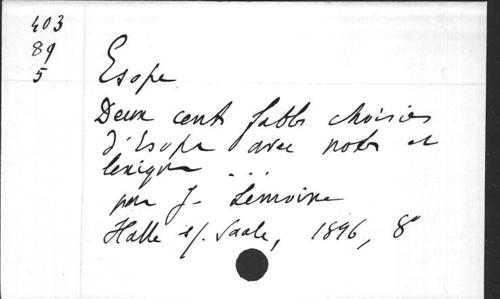 403
89
5
Esope
Deux cents fables choisies
d'Esope avec notes et
lexique ...
par J. Lemoine
Halle s/. Saale, 1896, 8°